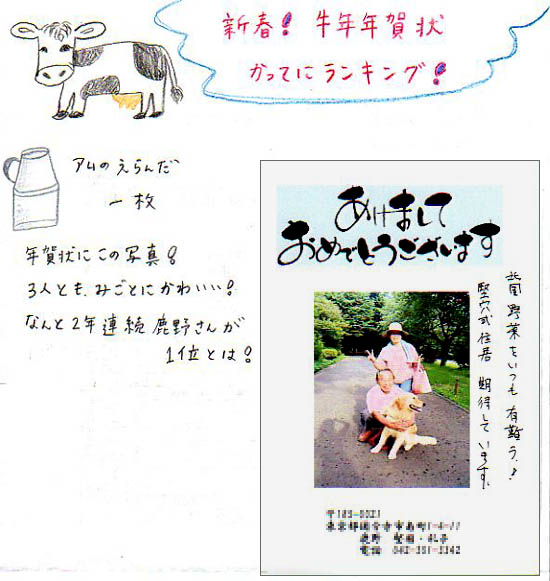 新春! 牛年年賀状
かってにランキング!
アムのえらんだ
一枚
年賀状にこの写真!
3人とも、みごとにかわいい!
なんと2年連続 鹿野さんが
1位とは!
あけまして
おめでとうございます
野菜をいつも有難う♪
竪穴式住居 期待しています。
東京都国分寺市
電話